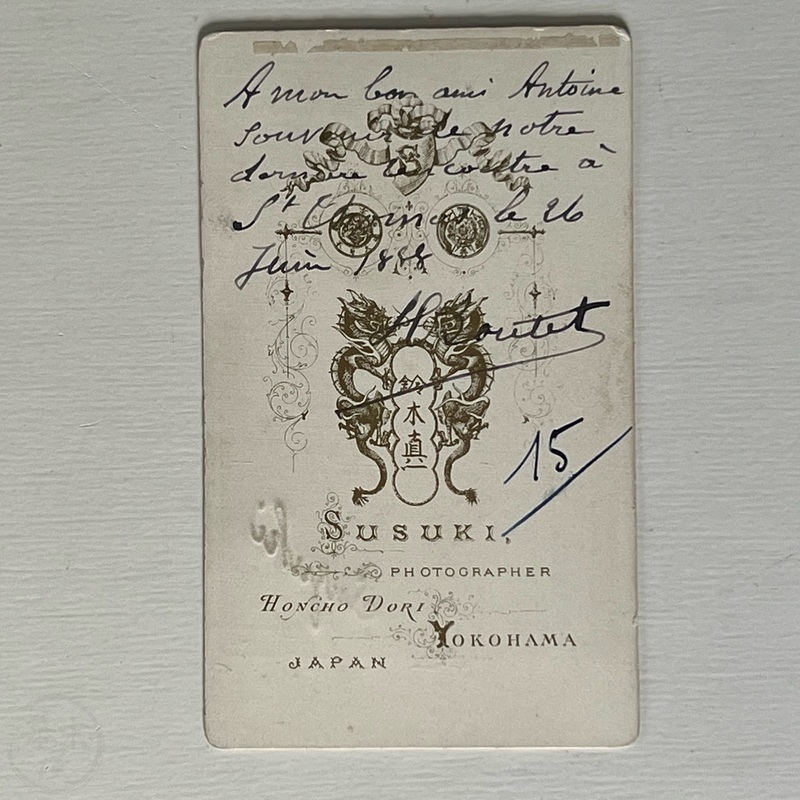 A mon bon ami Antoine
Souvenir de notre
dernière rencontre à
St Thomas le 26
Juin 1888
S
H Coutet
鈴木真一
15
SUSUKI,
PHOTOGRAPHER
HONCHO DORI
YOKOHAMA
JAPAN